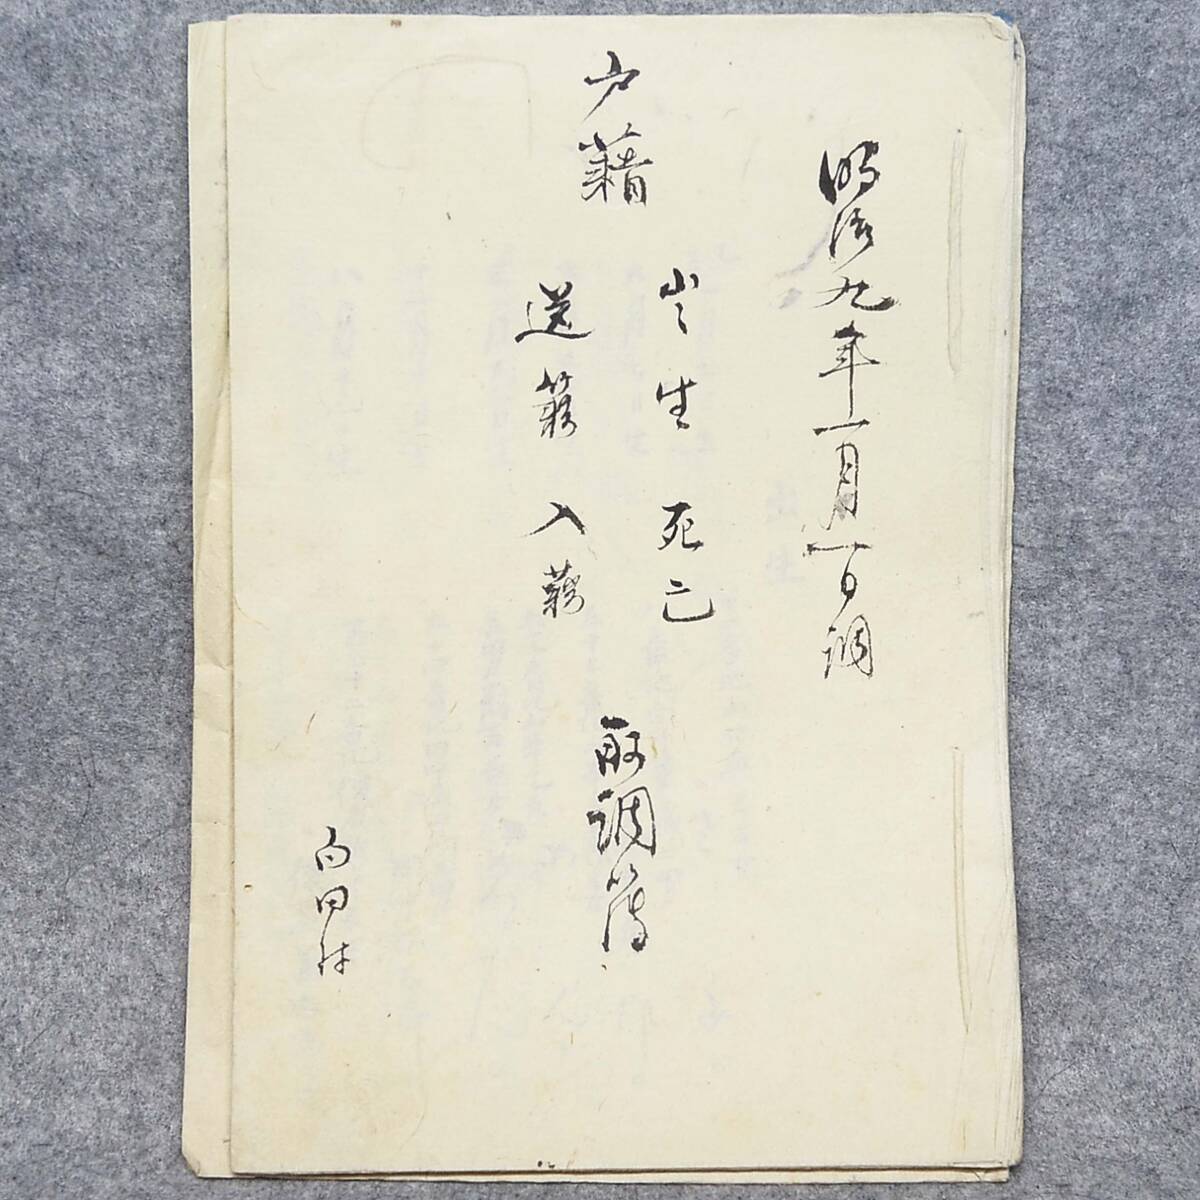 明治九年一月一日調
戸籍
出生死亡
送籍入籍
取調簿
向田村